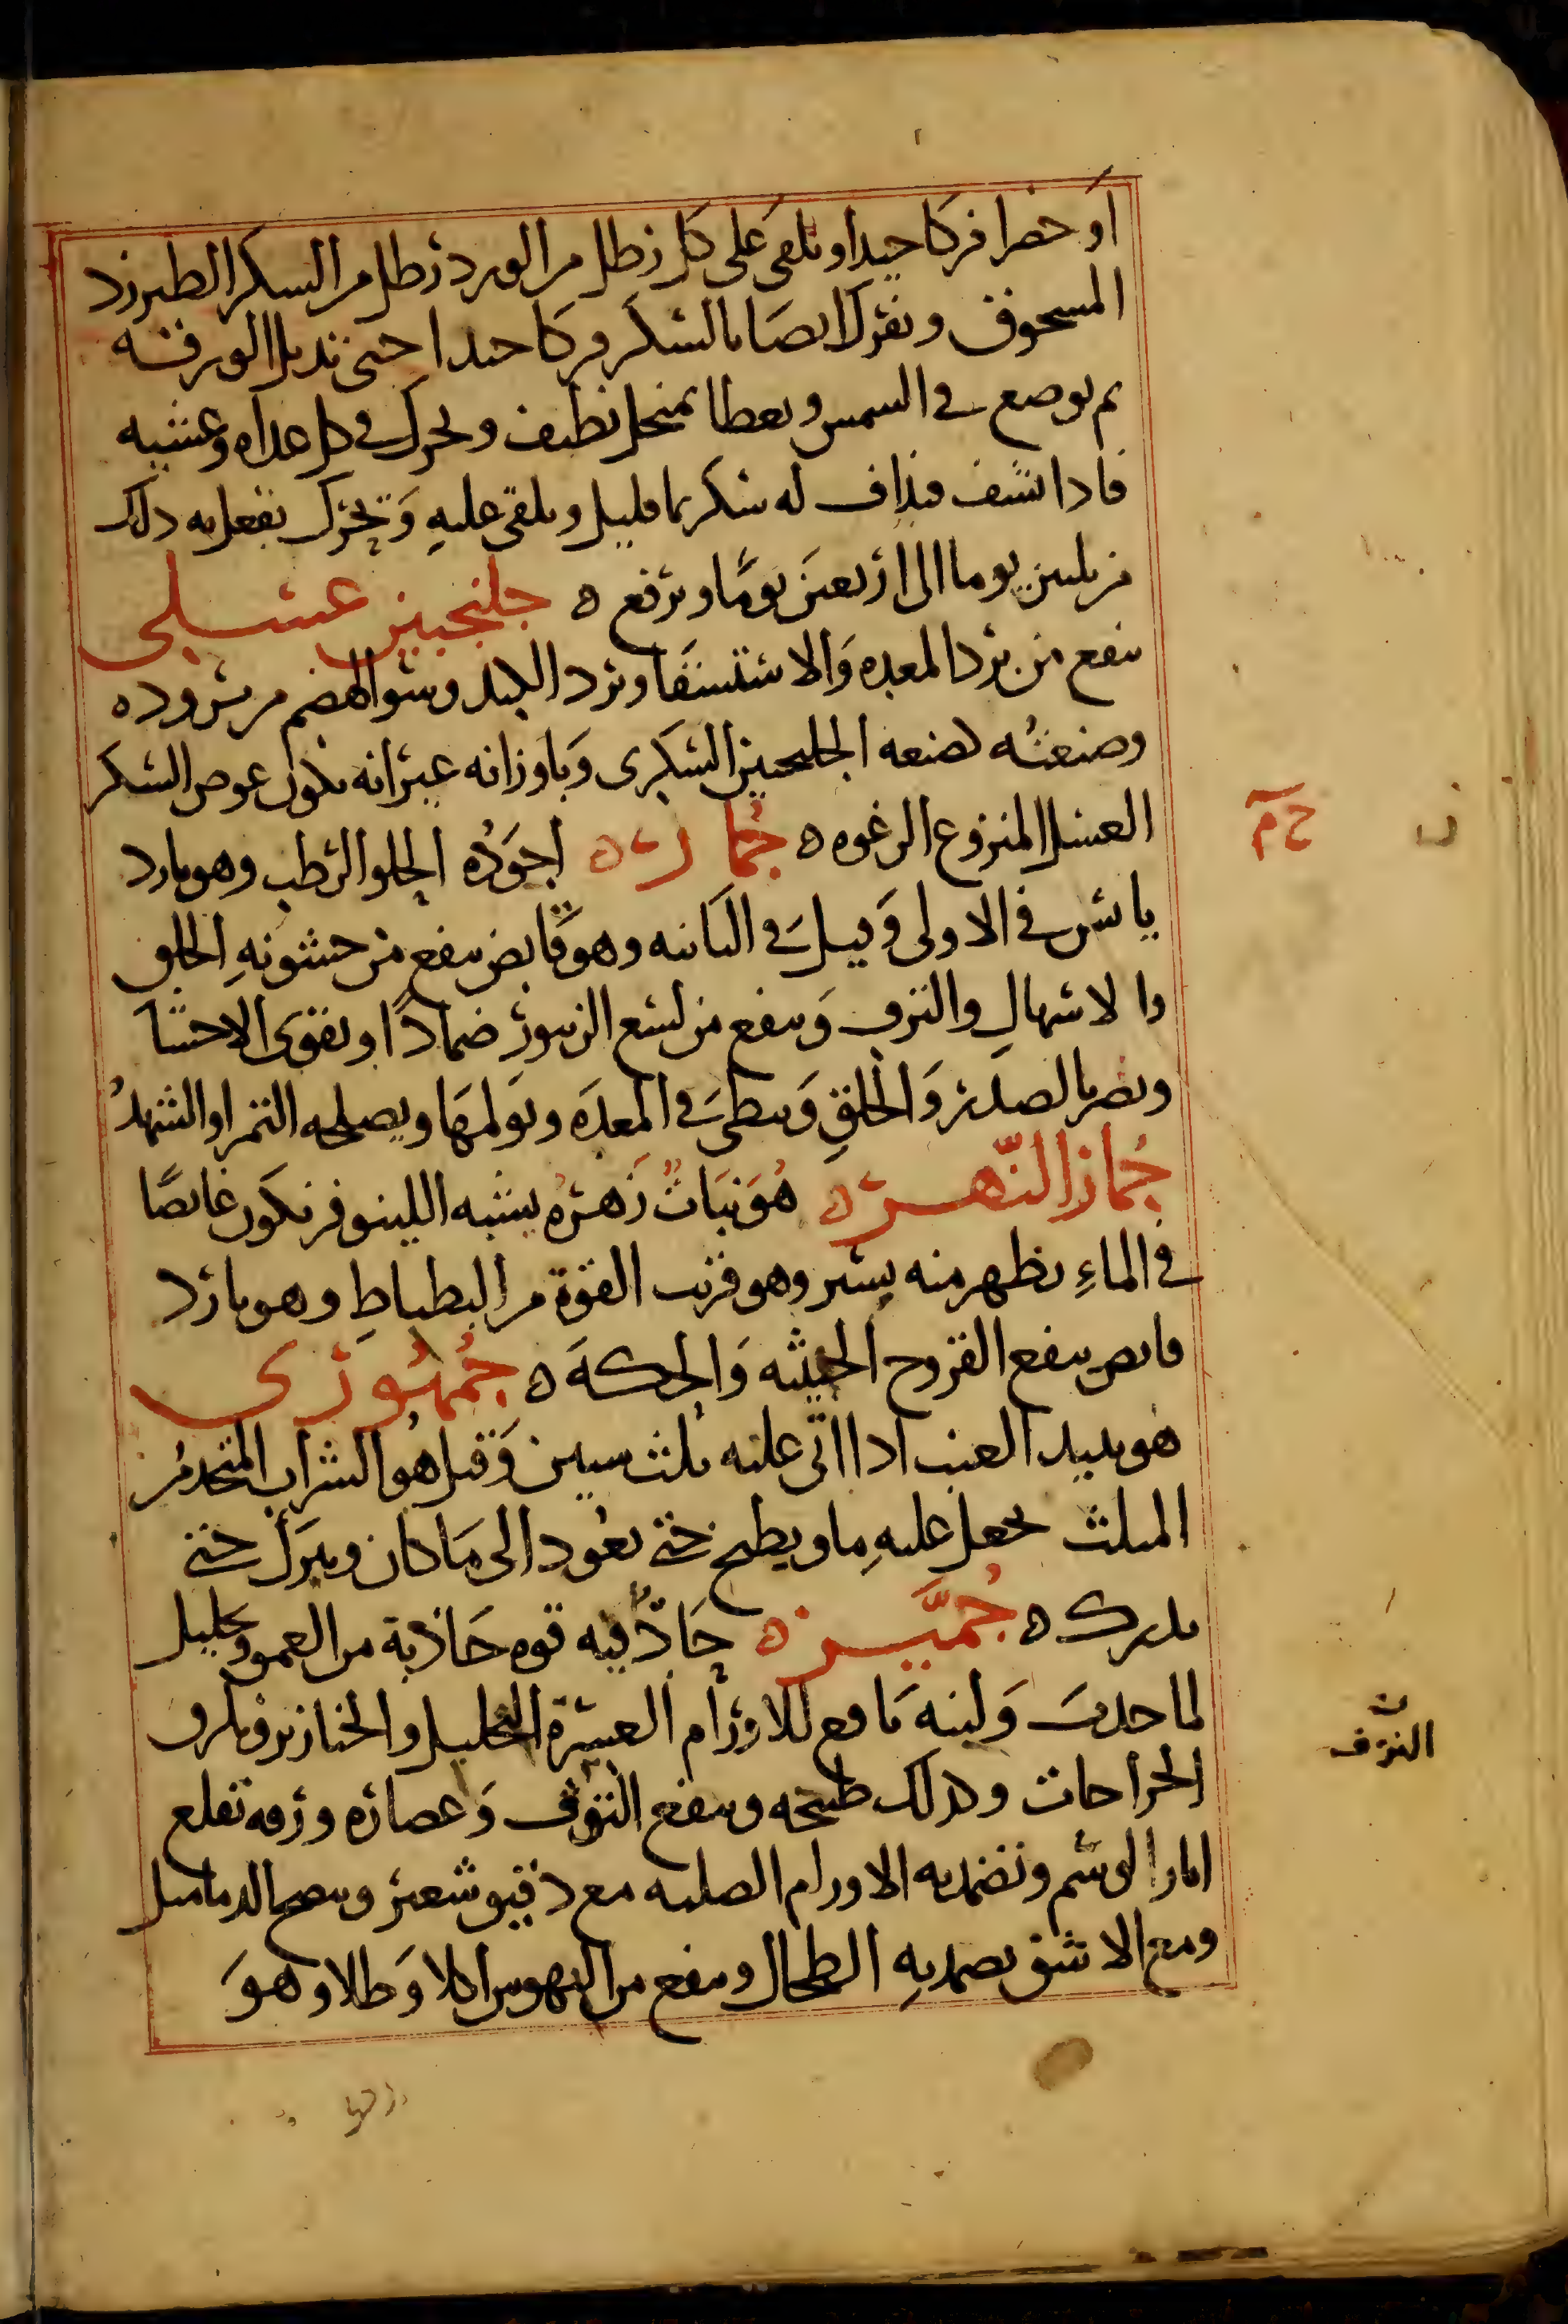 او خضرا فركا جيدا ويلقى على كل رطل من الورد رطل من السكر الطبرزد
المسحوق ويفرك ايضا بالسكر فركا جيدا حتى تذبل الورقة
ثم يوضع في الشمس ويغطا بمنخل نظيف ويحرك في كل غداه وعشيه
فاذا نشف فيذاف له سكر بماء قليل ويلقى عليه ويحرك يفعل به ذلك
من ثلثين يوما الى اربعين يوما ويرفع ه جلنجبين عسلي
ينفع من برد المعده والاستسقا وبرد الكبد وسو الهضم من بروده
وصنعته كصنعه الجلنجبين السكري وباوزانه غير انه يكون عوض السكر
العسل المنزوع الرغوه ه جمار ه اجوده الحلو الرطب وهو بارد
يابس في الاولى وقيل في الثانيه وهو قابض ينفع من خشونه الحلق
والاسهال والنزف وينفع من لسع الزنبور ضمادا ويقوى الاحشا
ويضر بالصدر والحلق ويبطى في المعده ويولمها ويصلحه التمر او الشهد
جمار النهر ه هو نبات زهره يشبه اللينوفر يكون غايصا
في الماء يظهر منه يسير وهو قريب القوة من البطباط وهو بارد
قابض ينفع القروح الخبيثه والحكه ه جمهوري
هو نبيد العنب ادا اتى عليه ثلث سنين وقيل هو الشراب المتخد من
المثلث يجعل عليه ما ويطبخ حتى يعود الى ما كان ويترك حتى
يدرك ه جميز ه حاد فيه قوه جاذبة من العمق وتحليل
لما جدبت ولبنه نافع للاورام العسرة التحليل والخنازير ويلزق
الجراحات وكدلك طبيخه وينفع النزف وعصاره ورقه تقلع
اثار الوشم وتضمد به الاورام الصلبه مع دقيق شعير وينضج الدماميل
ومع الاشق يضمد به الطحال وينفع من النهوس اكلا وطلا وهو
النزف